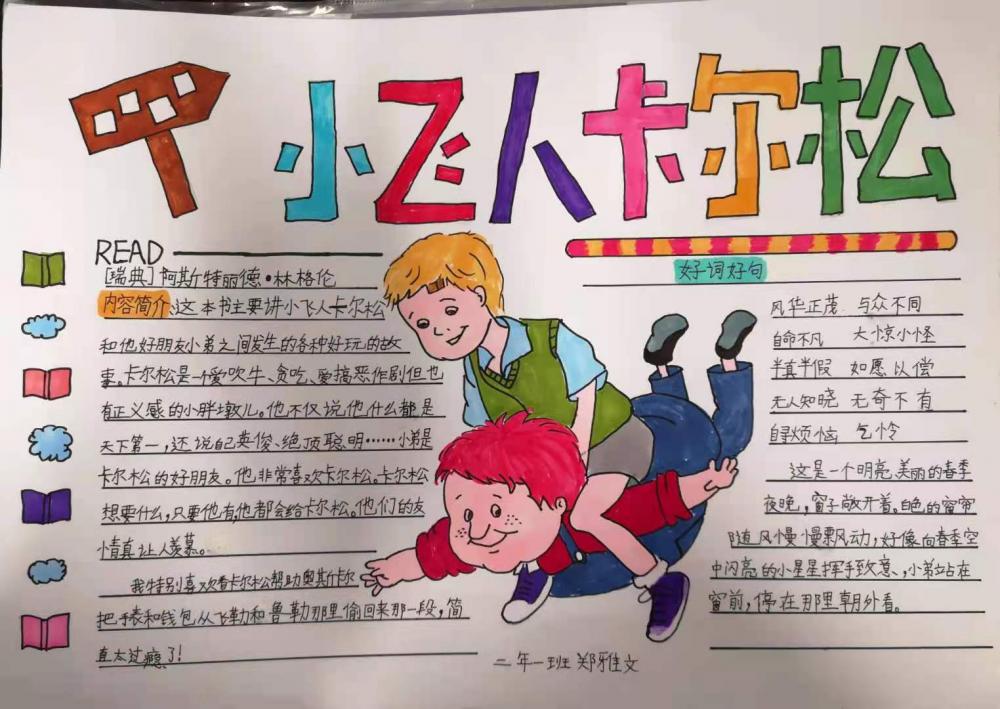 小飞人卡尔松
READ
[瑞典]阿斯特丽德·林格伦
内容简介:这本书主要讲小飞人卡尔松
和他好朋友小弟之间发生的各种好玩的故
事。卡尔松是一个爱吹牛、贪吃、爱搞恶作剧但也
有正义感的小胖墩儿。他不仅说他什么都是
天下第一,还说自己英俊、绝顶聪明……小弟是
卡尔松的好朋友。他非常喜欢卡尔松。卡尔松
想要什么,只要他有,他都会给卡尔松。他们的友
情真让人羡慕。
我特别喜欢看卡尔松帮助奥斯卡尔
把手表和钱包从飞勒和鲁勒那里偷回来那一段,简
直太过瘾了!
好词好句
风华正茂 与众不同
自命不凡 大惊小怪
半真半假 如愿以偿
无人知晓 无奇不有
自寻烦恼 乞怜
这是一个明亮、美丽的春季
夜晚,窗子敞开着。白色的窗帘
随风慢慢飘动,好像向春季空
中闪亮的小星星挥手致意、小弟站在
窗前,停在那里朝外看。
二年一班 郑雅文